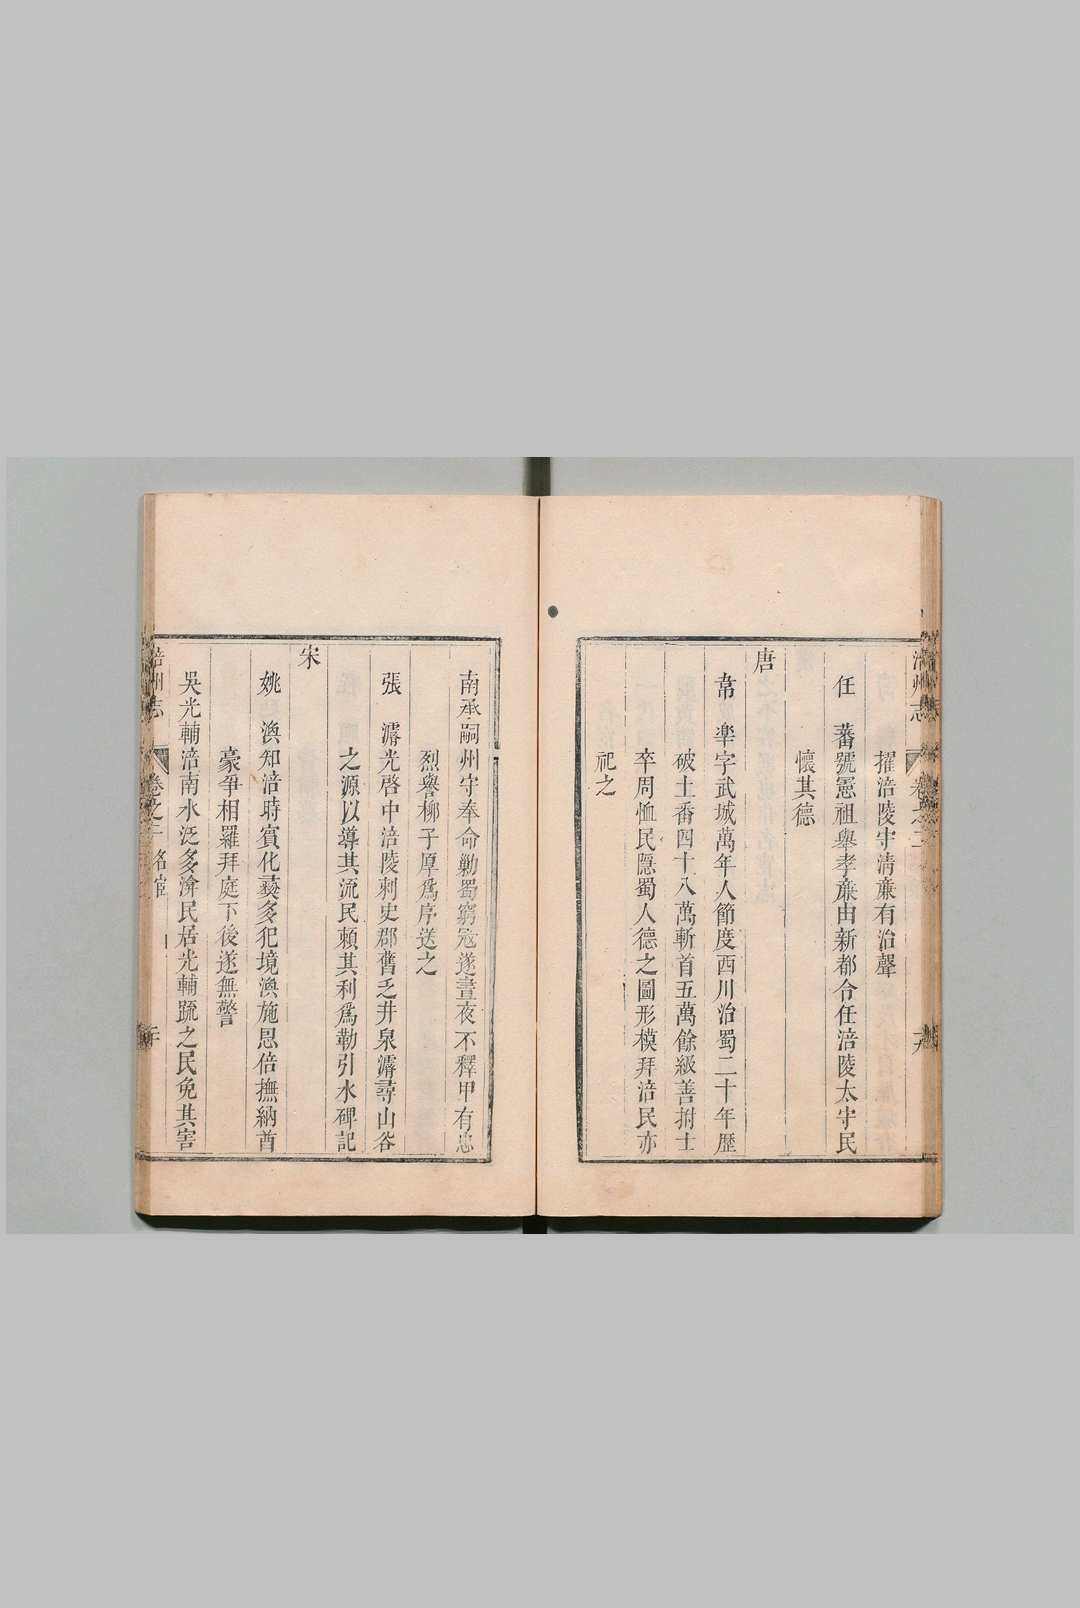 涪州志
卷之二
擢涪陵守清亷有治聲
任　蕃號憲祖舉孝亷由新都令任涪陵太守民
懷其德
唐
韋　皋字武城萬年人節度西川治蜀二十年歷
破土番四十八萬斬首五萬餘級善拊士
卒周恤民隱蜀人德之圖形模拜涪民亦
祀之
南承嗣州守奉命勦蜀窮宼遂晝夜不釋甲有忠
烈譽柳子厚爲序送之
張　濬光啓中涪陵刺史郡舊乏井泉濬尋山谷
之源以導其流民頼其利爲勒引水碑記
宋
姚　渙知涪時賓化彛多犯境渙施恩倍撫納酋
豪爭相羅拜庭下後遂無警
吳光輔涪南水泛多渰民居光輔疏之民免其害
涪州志
卷之二
名宦